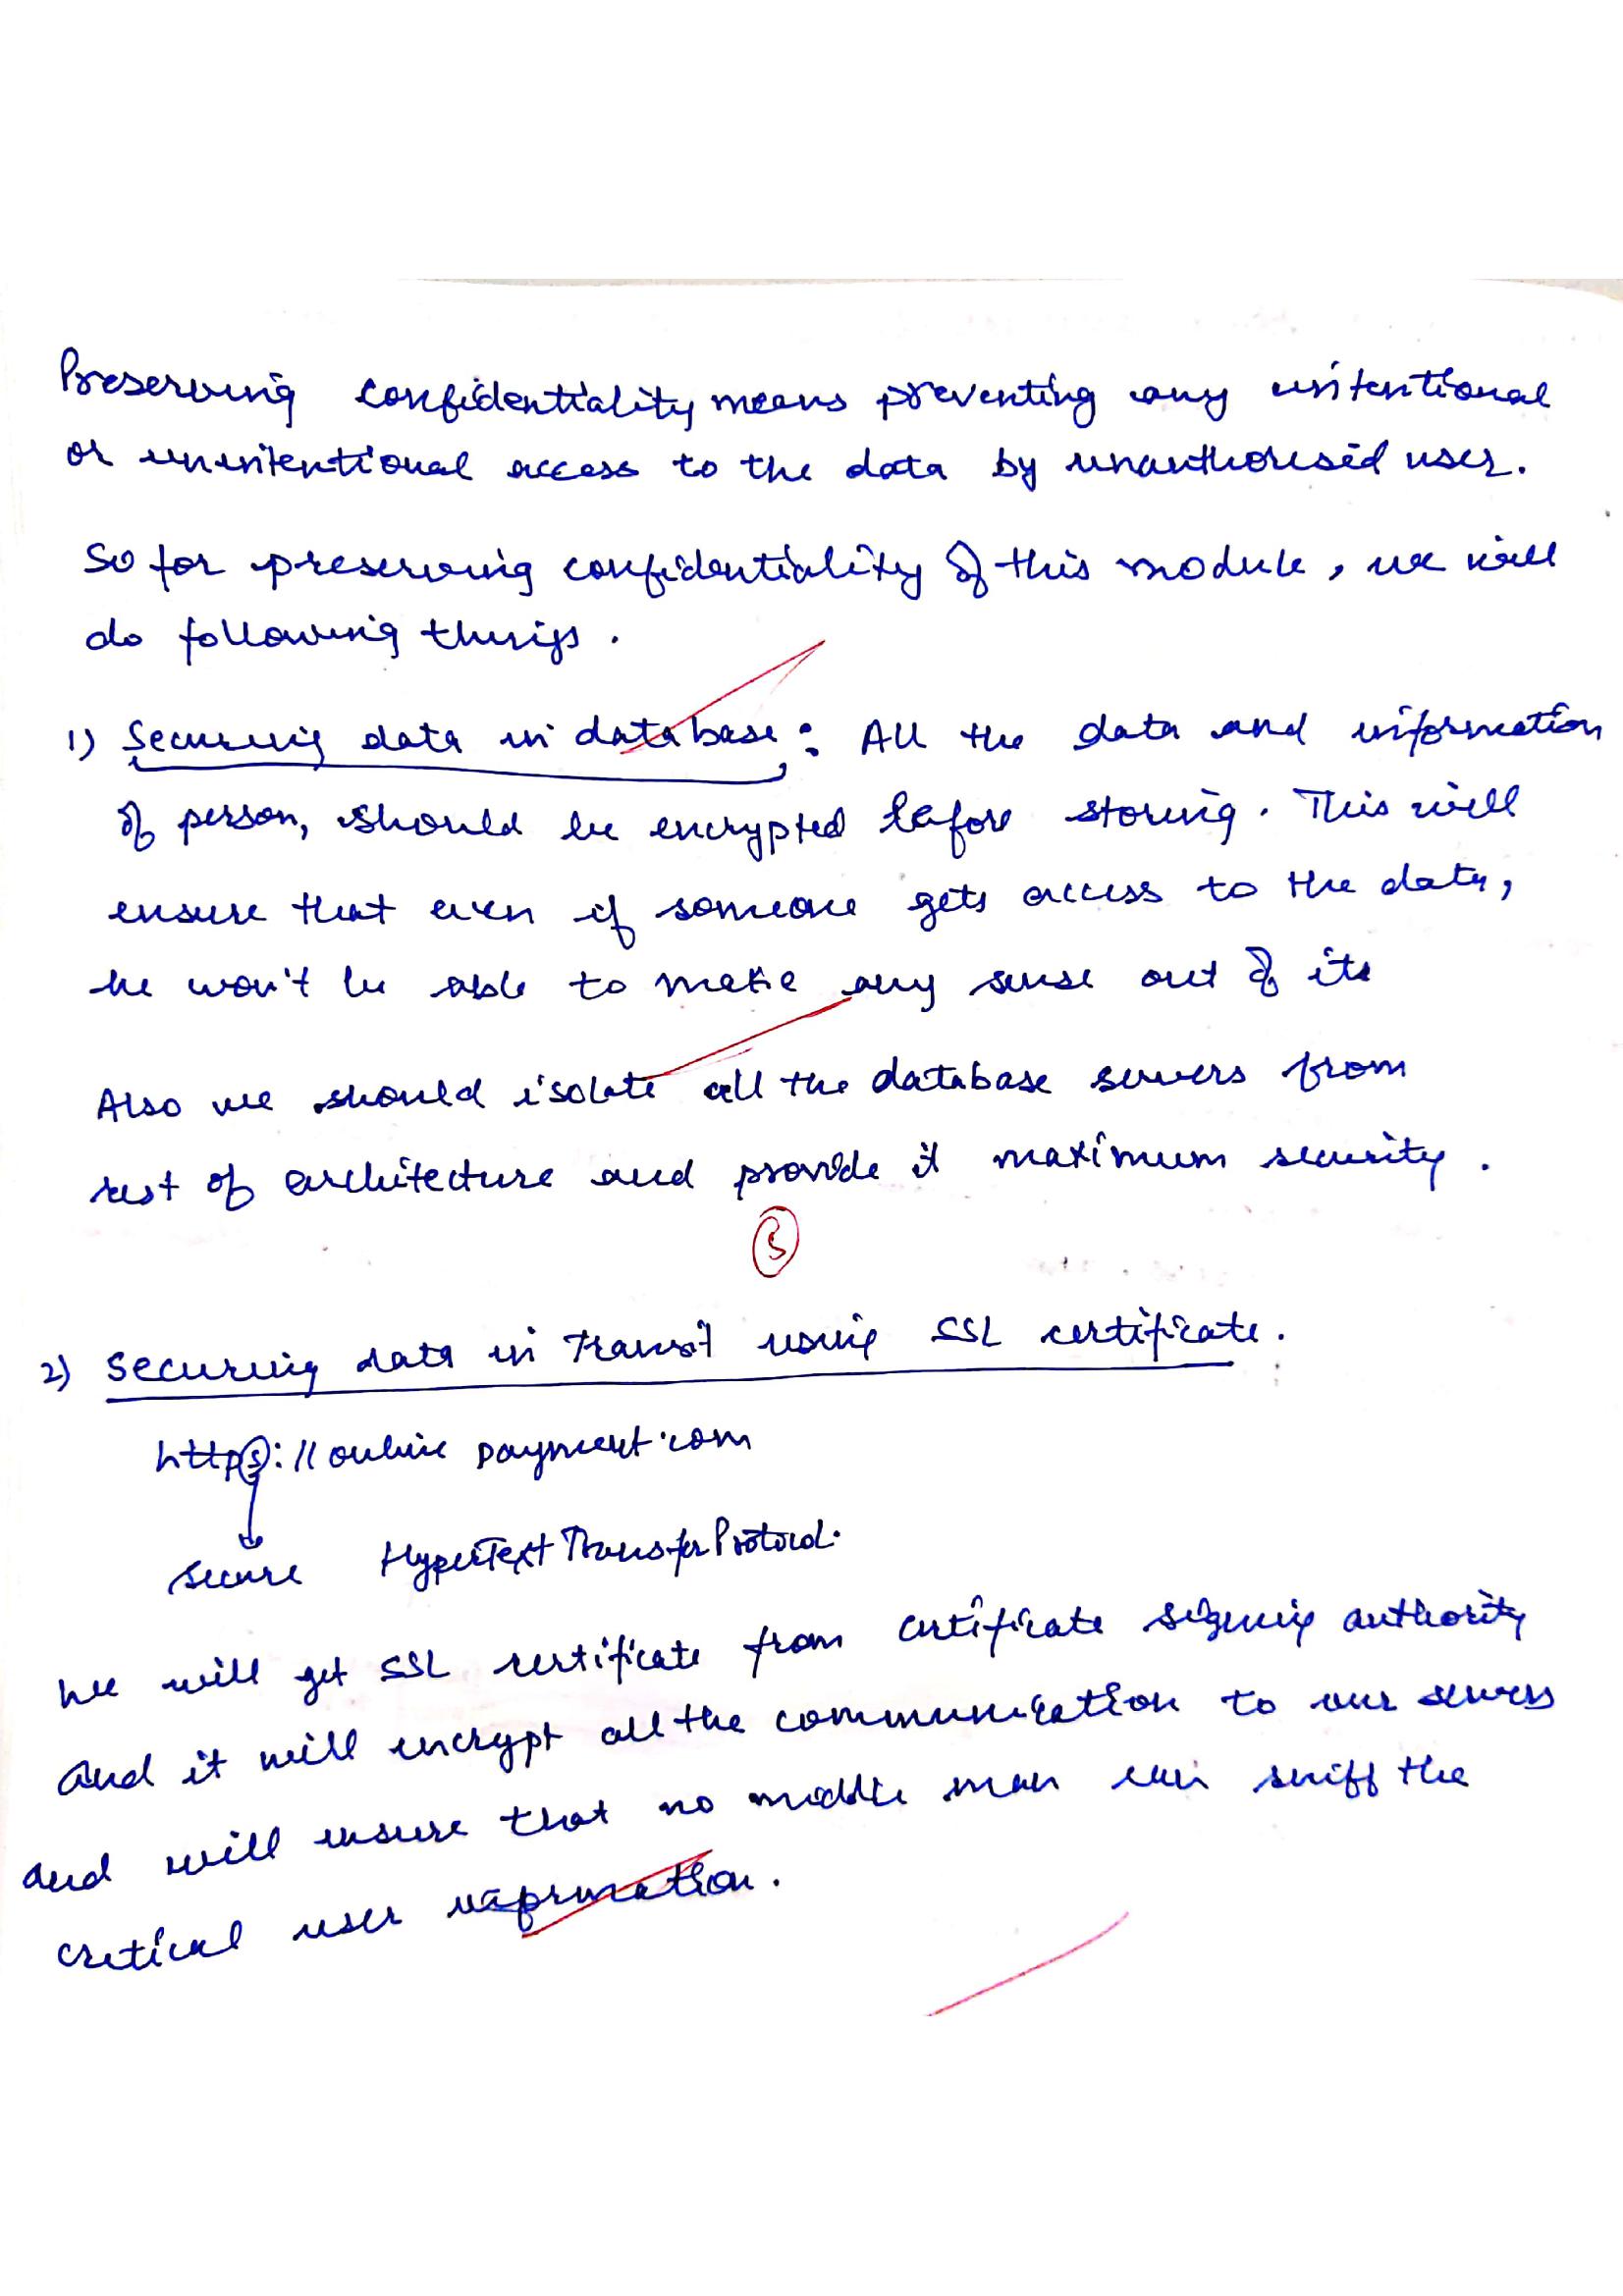 Preserving confidentiality means preventing any intentional
or unintentional access to the data by unauthorised user.
So for preserving confidentiality of this module, we will
do following things.
1) Securing data in database: All the data and information
of person, should be encrypted before storing. This will
ensure that even if someone gets access to the data,
he won't be able to make any sense out of it.
Also we should isolate all the database servers from
rest of architecture and provide it maximum security.
2) Securing data in Transit using SSL certificate.
https://online payment.com
secure HyperText Transfer Protocol.
We will get SSL certificate from certificate signing authority
and it will encrypt all the communication to our servers
and will ensure that no middle man can sniff the
critical user information.